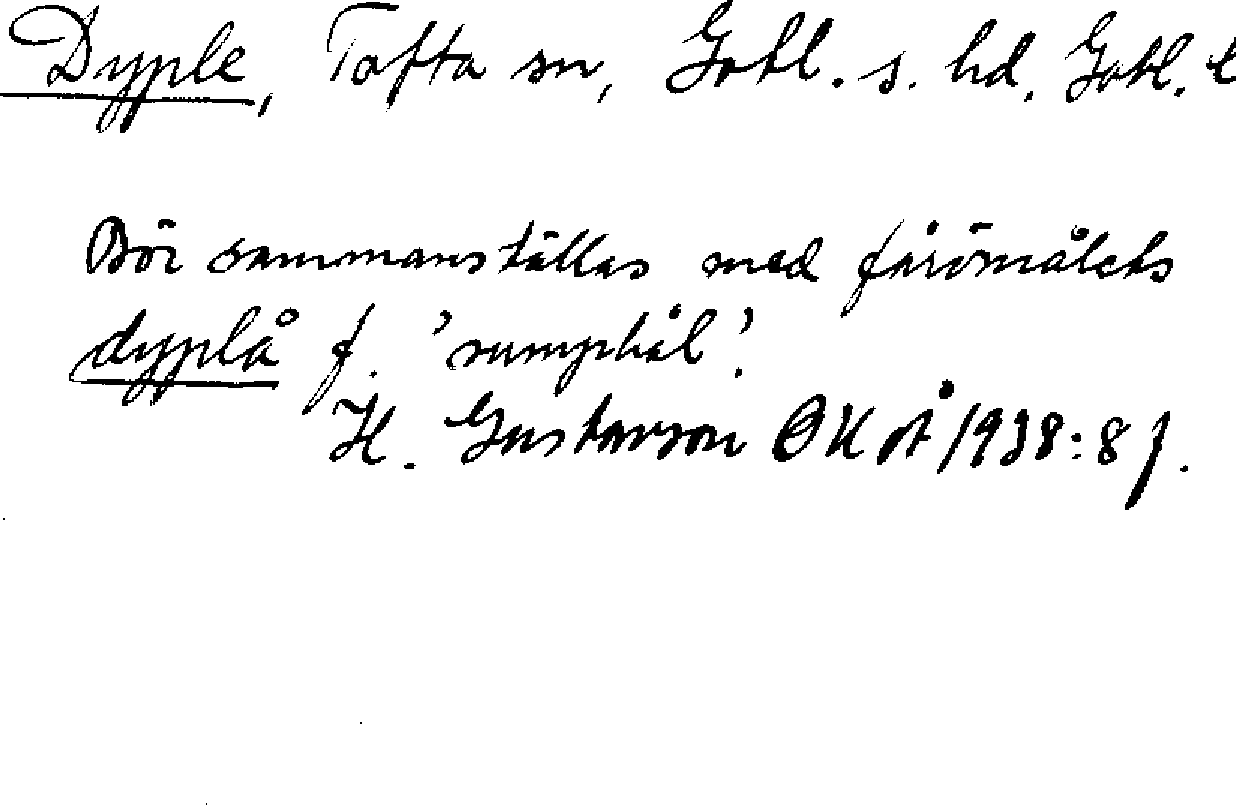 Dyple, Tofta sn, Gotl. s. hd. Gotl. l
Bör sammanställas med fårömålets
dyplå f. 'sumphål'.
H. Gustavson OKÅ 1938:8f.